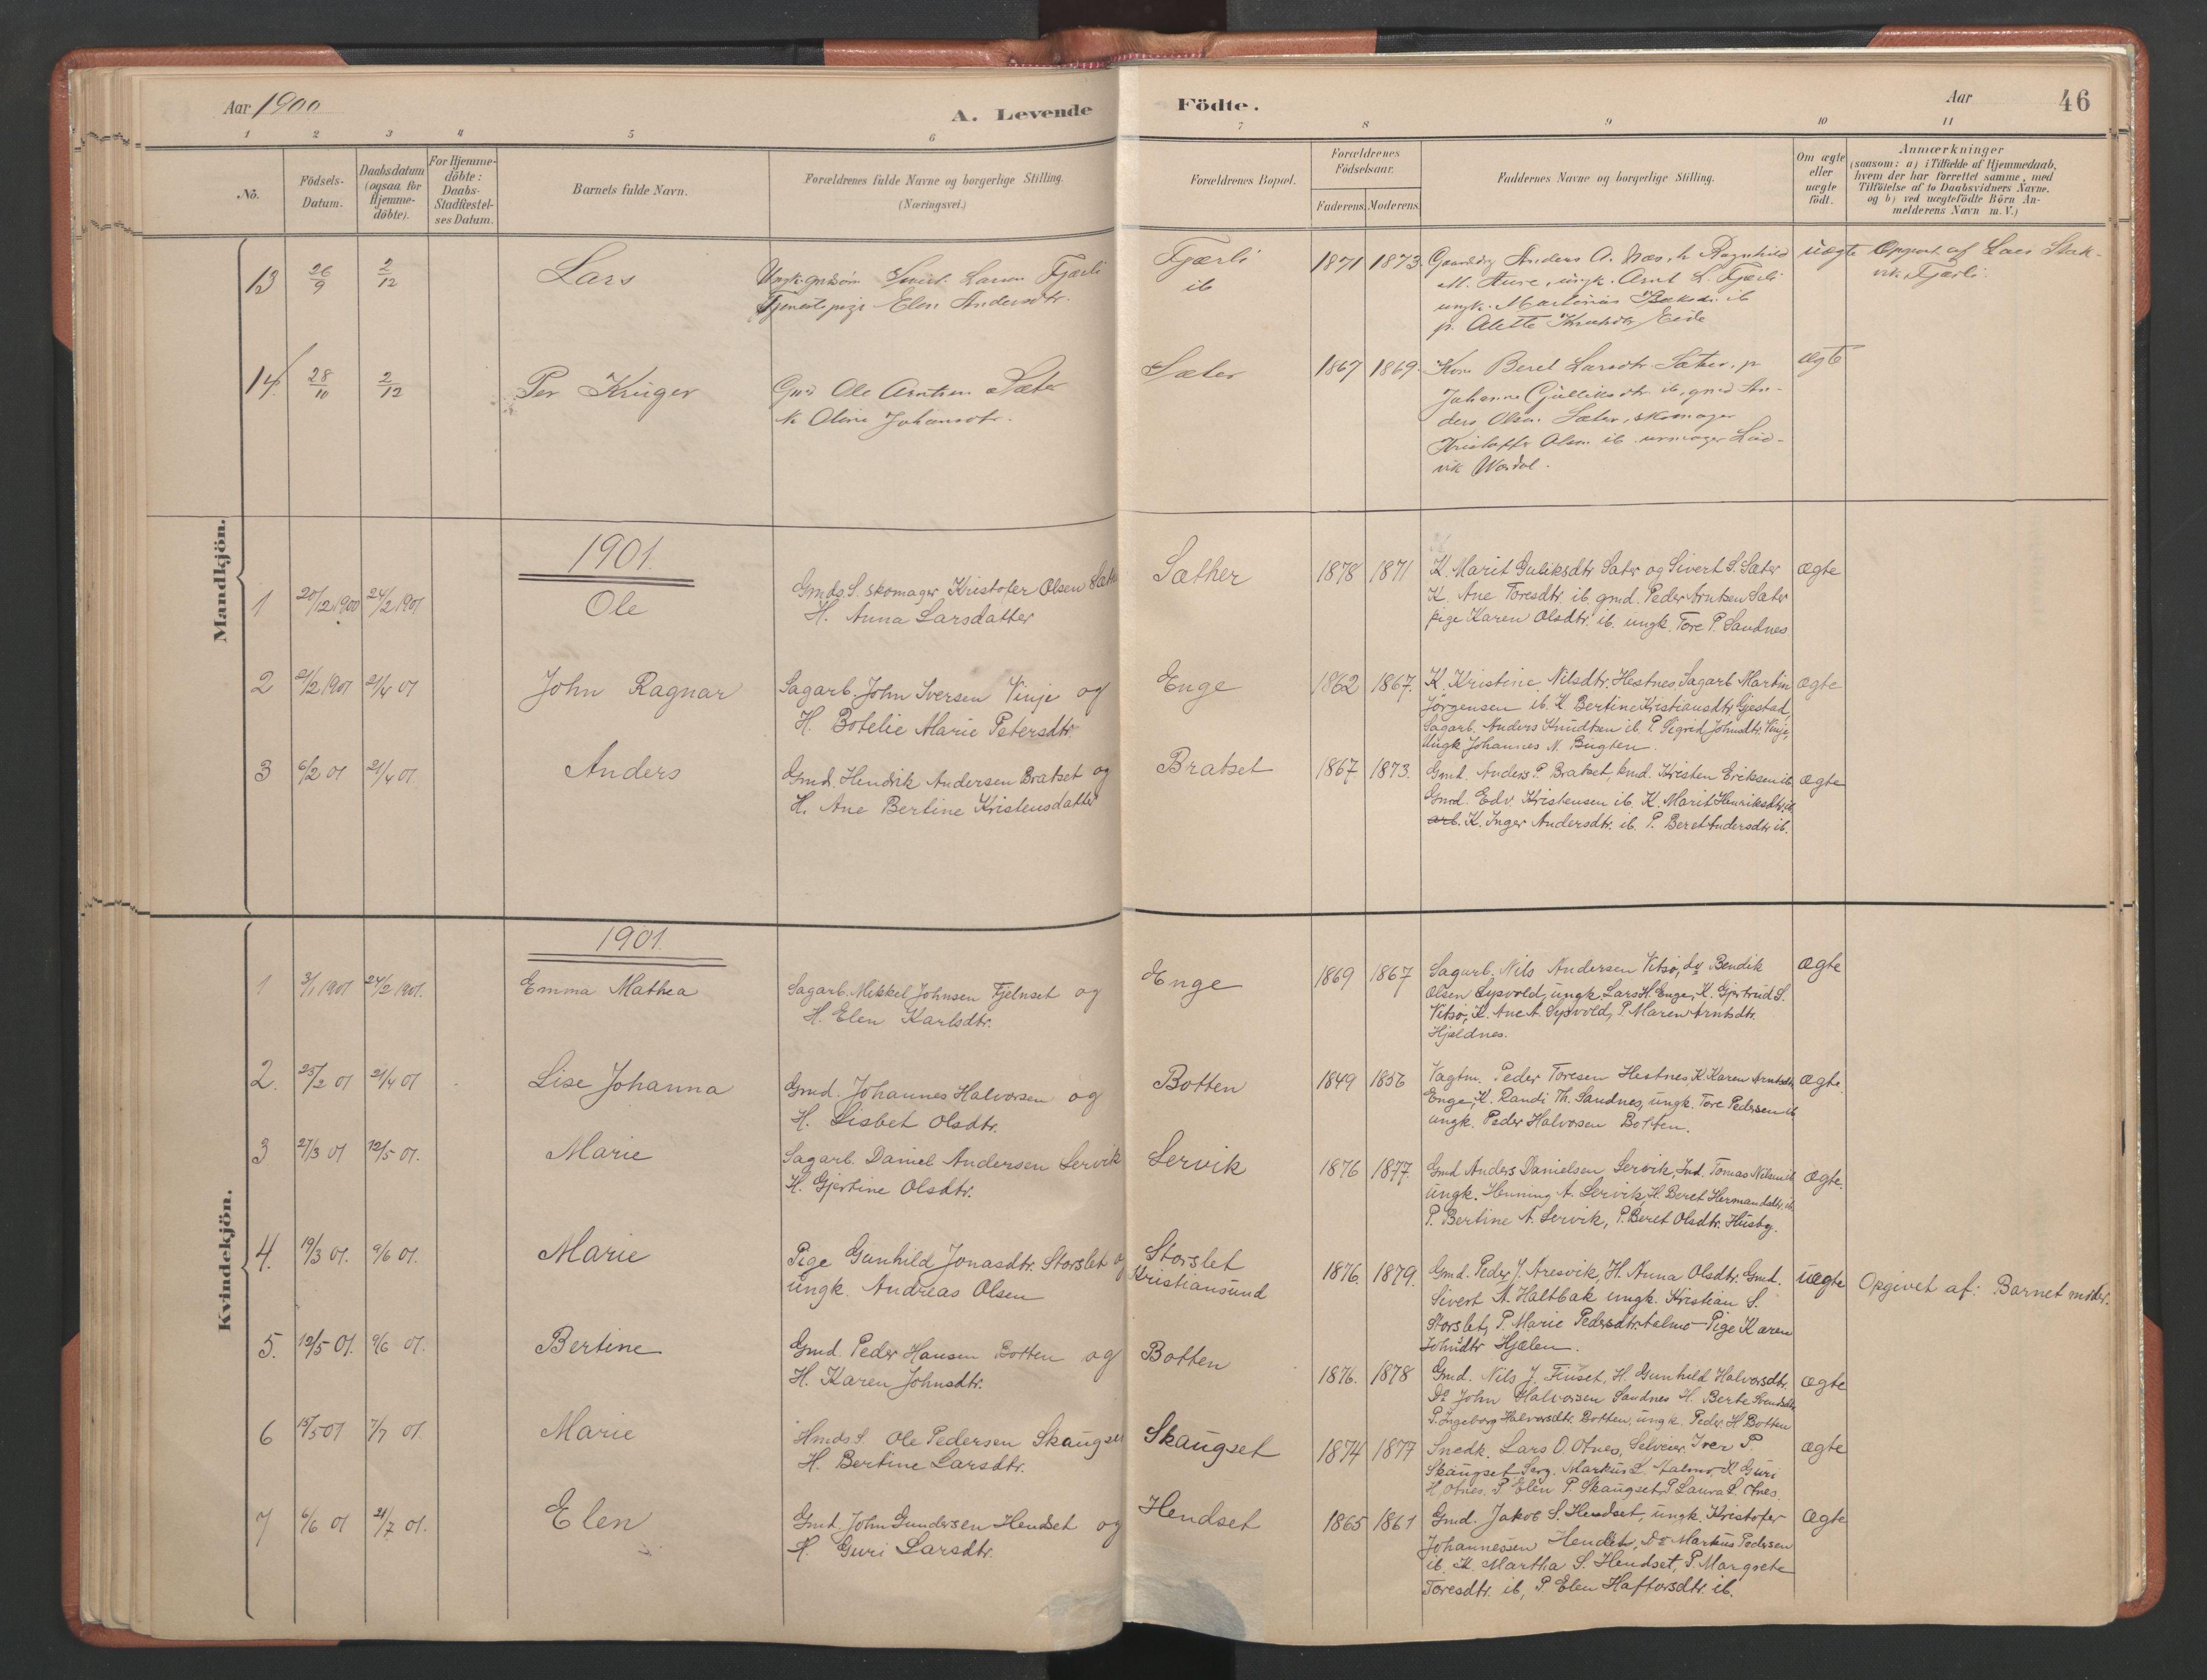 Aar 1900
A. Levende Födte.
Aar
46
1 2 3 4 5 6 7 8 9 10 11
No.
Födsels-Datum.
Daabsdatum (ogsaa for Hjemmedöbte).
For Hjemmedöbte: Daabs-Stadfæstelses Datum.
Barnets fulde Navn.
Forældrenes fulde Navne og borgerlige Stilling. (Næringsvei.)
Forældrenes Bopæl.
Forældrenes Födselsaar.
Faderens. Moderens.
Faddernes Navne og borgerlige Stilling.
Om ægte eller uægte födt.
Anmærkninger
(saasom: a) i Tilfælde af Hjemmedaab,
hvem der har forrettet samme, med
Tilföielse af to Daabsvidners Navne.
og b) ved uægtefödte Börn An-
melderens Navn m. V.)
Mandkjön.
13 26/9 2/12 Lars
Sivert Larsen Fjærli
Tjenestepige Elen Andersdtr.
Fjærli
ib
1871 1873.
Anders A. Næs, Ragnhild
M. Aure, ungk. Arnt L. Fjærli
ungk. Martinus ib
p. Alette Knudsdtr Eide
uægte
Opgivet af Lars
Fjærli.
14 28/10 2/12 Per Krüger
Gmd Ole Arntsen Sæter
K. Oline Johansdtr.
Sæter
1867 1869.
Kone Beret Larsdtr Sæter, p
Johanna Gulliksdtr ib, gmd An-
ders Olsen Sæter, skomager
Kristoffer Olsen ib. urmager Lud-
vik
ægte
1901.
1 20/12 1900 24/2 1901 Ole
Gmds. S. skomager Kristofer Olsen Sæther
H. Anna Larsdatter
Sæther
1878 1871
K. Marit Guliksdtr Sæter og Sivert S. Sæter
K. Ane Toresdtr. ib. gmd. Peder Arntsen Sæter
pige Karen Olsdtr. ib. ungk. Tore P. Sandnes.
ægte
2 2/2 1901 21/4 01 John Ragnar
Sagarb. John Iversen Vinje og
H. Botelie Marie Petersdtr.
Enge
1862 1867.
K. Kristine Nilsdtr. Hestnes, Sagarb. Martin
Jørgensen ib. K. Bertine Kristiansdtr Gjestad,
Sagarb. Anders Knudtsen ib. P. Sigrid Johnsdtr. Vinje,
Ungk Johannes N. Bugten.
ægte
3 6/2 01 21/4 01. Anders
Gmd. Hendrik Andersen Bratset og
H. Ane Bertine Kristensdatter
Bratset
1867 1873.
Gmd. Anders P. Bratset, kmd. Kristen Eriksen ib
Gmd. Edv. Kristensen ib. K. Marit Henriksdtr. ib.
arb. K. Inger Andersdtr. ib. P. Beret Andersdtr ib.
ægte
Kvindekjön.
1901.
1 3/1 1901 24/2 1901. Emma Mathea
Sagarb. Mikkel Johnsen Fjelnset og
H. Elen Karlsdtr.
Enge
1869 1867
Sagarb. Nils Andersen Vitsø, do Bendik
Olsen Sysvold, ungk. Lars H. Enge, K. Gjertrud S.
Vitsø, K. Ane A. Sysvold, P. Maren Arntsdtr.
Hjeldnes.
ægte
2. 25/2 01 21/4 01 Lise Johanna
Gmd. Johannes Halvorsen og
H. Lisbet Olsdtr.
Botten
1849 1856
Vagtm. Peder Toresen Hestnes K. Karen Arntsdtr.
Enge, K. Randi Th. Sandnes, ungk. Tore Pedersen ib
ungk. Peder Halvorsen Botten.
ægte.
3 27/3 01 12/5 01. Marie
Sagarb. Daniel Andersen Servik
H. Gjertine Olsdtr.
Servik
1876 1877.
Gmd Anders Danielsen Servik, Ind. Tomas Nilsen ib
ungk. Henning A. Servik, H. Beret Hermandsdtr. ib.
P. Bertine A. Servik, P. Beret Olsdtr. Husby.
ægte.
4. 19/3 01. 9/6 01. Marie
Pige Gunhild Jonasdtr. Storslet og
ungk. Andreas Olsen
Storslet
Kristiansund
1876. 1879.
Gmd. Peder J. Aresvik, H. Anna Olsdtr. Gmd.
Sivert A. Haltbak ungk. Kristian S.
Storslet, P. Marie Pedersdtr. Halmo Pige Karen
Johnsdtr Hjælen.
uægte
Opgivet af: Barnet moder.
5. 12/5 01. 9/6 01. Bertine
Gmd. Peder Hansen Botten og
H. Karen Johnsdtr.
Botten
1876. 1878
Gmd. Nils J. Fiuset, H. Gunhild Halvorsdtr.
Do John Halvorsen Sandnes H. Berte Svendsdtr
P. Ingeborg Halvorsdtr. Botten, ungk. Peder H. Botten
ægte
6 15/5 01 7/7 01. Marie
Hmds S. Ole Pedersen Skaugset
H. Bertine Larsdtr.
Skaugset
1874 1877
Snedk. Lars O. Otnes, Selveier Iver P.
Skaugset Serg. Markus L. Halmo, K. Guri
H. Otnes. P. Elen P. Skaugset, P. Laura L. Otnes.
ægte
7 6/6 01 21/7 01. Elen
Gmd. John Gundersen Hendset og
H. Guri Larsdtr.
Hendset
1865 1861
Gmd. Jakob S. Hendset, ungk. Kristofer
Johannessen Hendset, Do Markus Pedersen
ib. K. Martha S. Hendset, P. Margrete
Toresdtr. ib, P. Elen Haftorsdtr. ib.
ægte